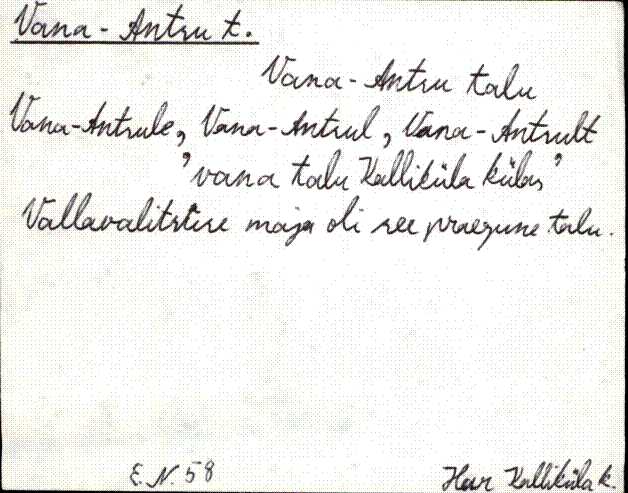 Vana-Antsu t.
Vana-Antsu talu
Vana-Antsule, Vana-Antsul, Vana-Antsult
"vana talu Kalliküla külas"
Vallavalitsuse maja oli see praegune talu.
E.N. 58 Kalliküla k.